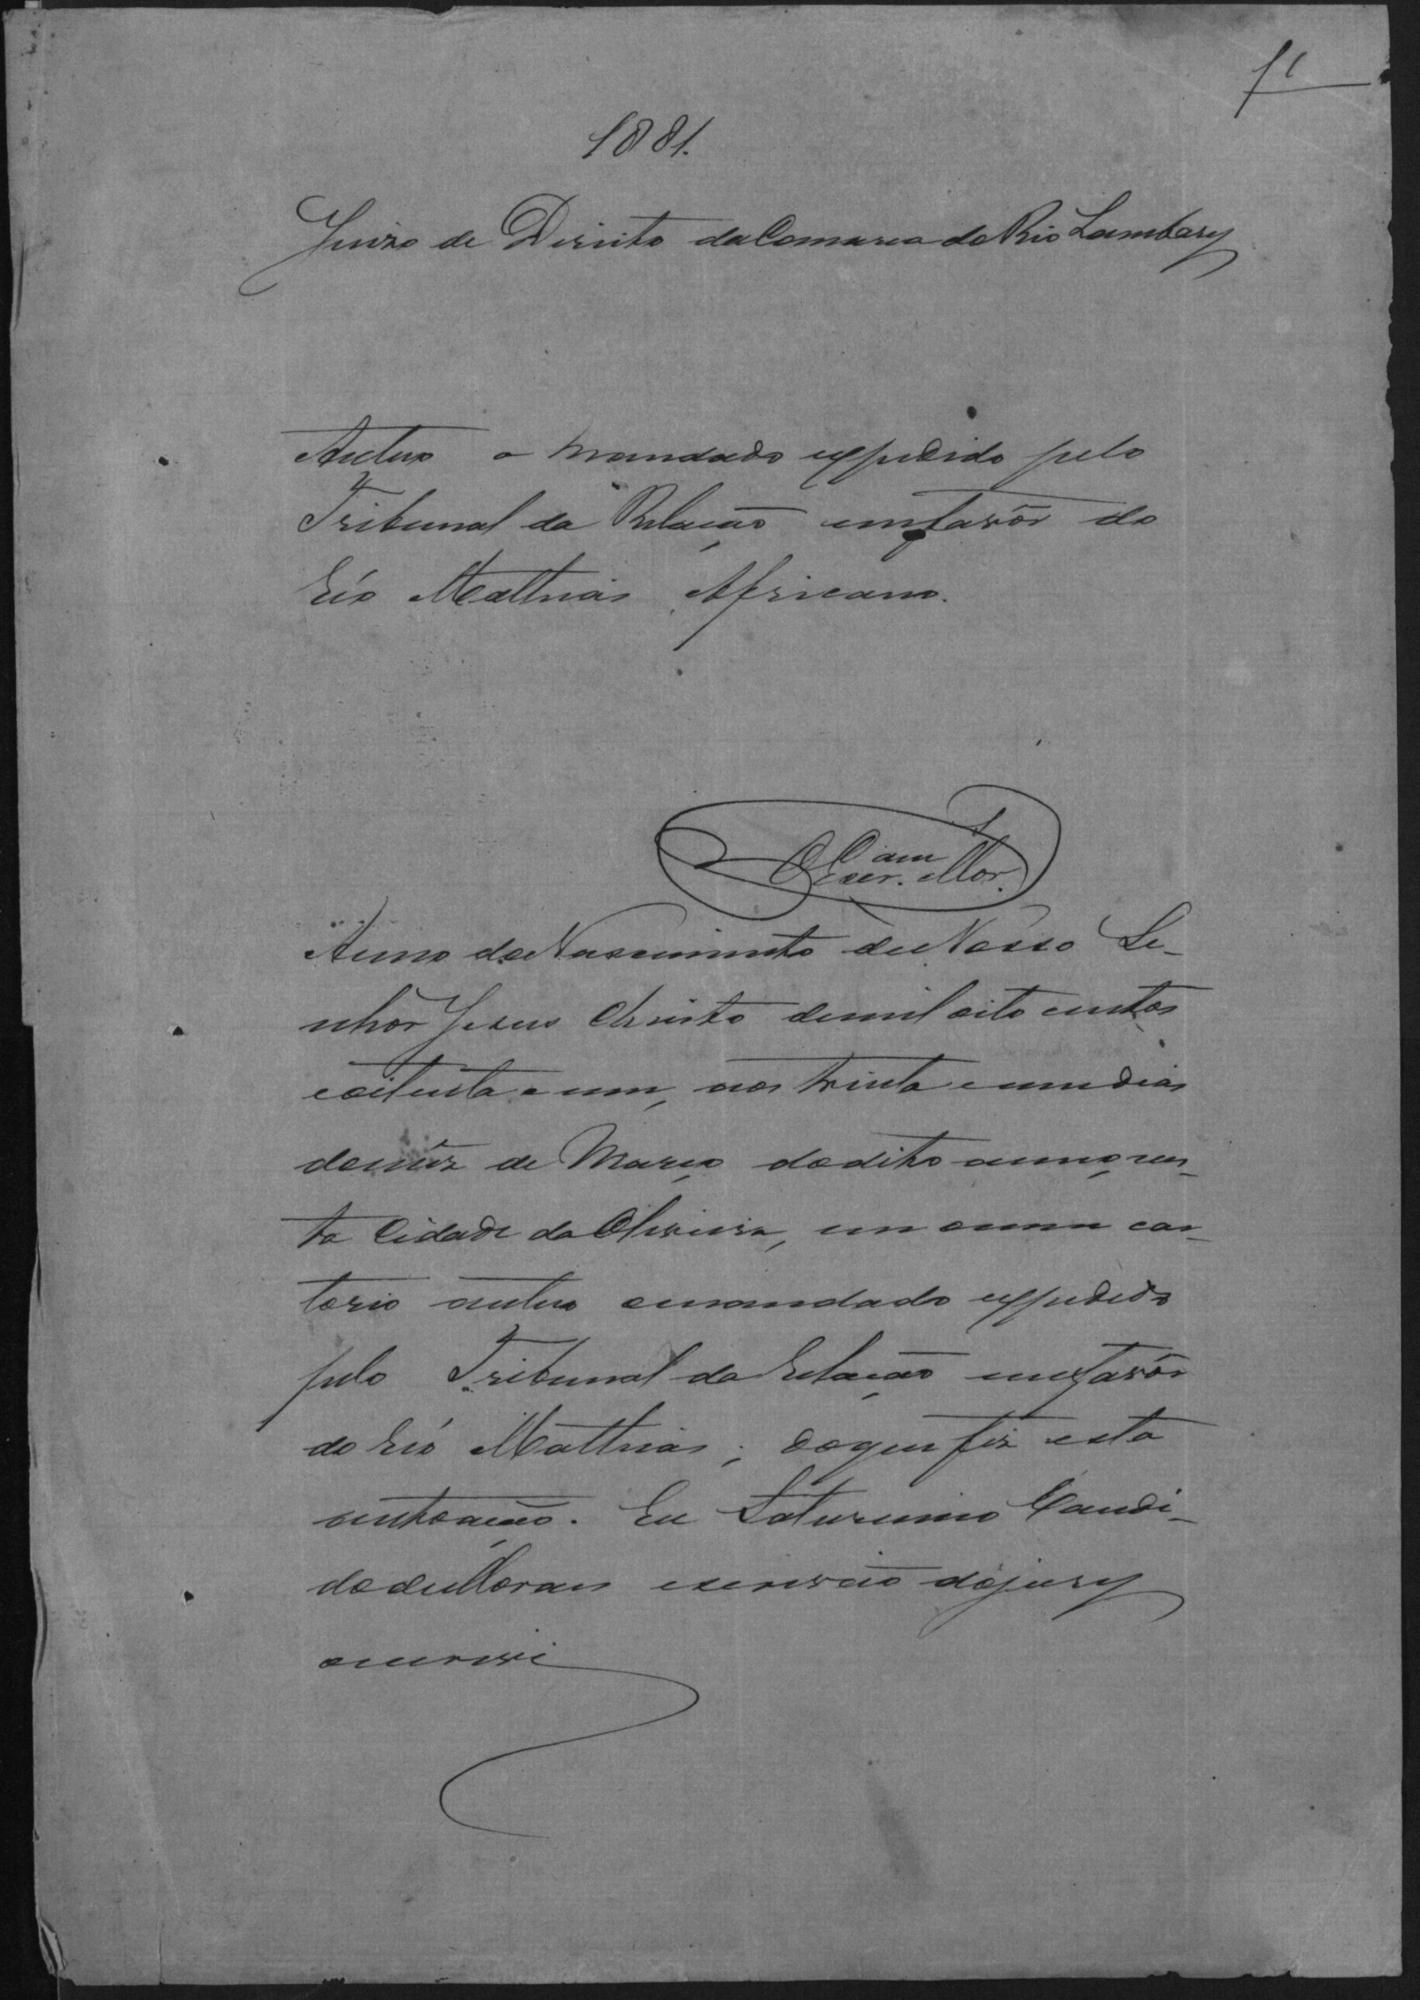 f 1
1881.
Juizo de Direito da Comarca do Rio Lambary
Autuo o mandado expedido pelo
Tribunal da Relação em favôr do
Réo Mathias Africano.
O Escr.am Mor.
Anno do Nascimento de Nosso Se-
nhôr Jesus Christo de mil oito centos
e oitenta e um, aos trinta e um dias
do mêz de Março do dito anno, nes-
ta Cidade da Oliveira, em o meu car-
torio autuo o mandado expedido
pelo Tribunal da Relação em favôr
do Réo Mathias; do que fiz esta
autoação. Eu Saturnino Candi-
do de Moraes escrivão do jury
o escrevi